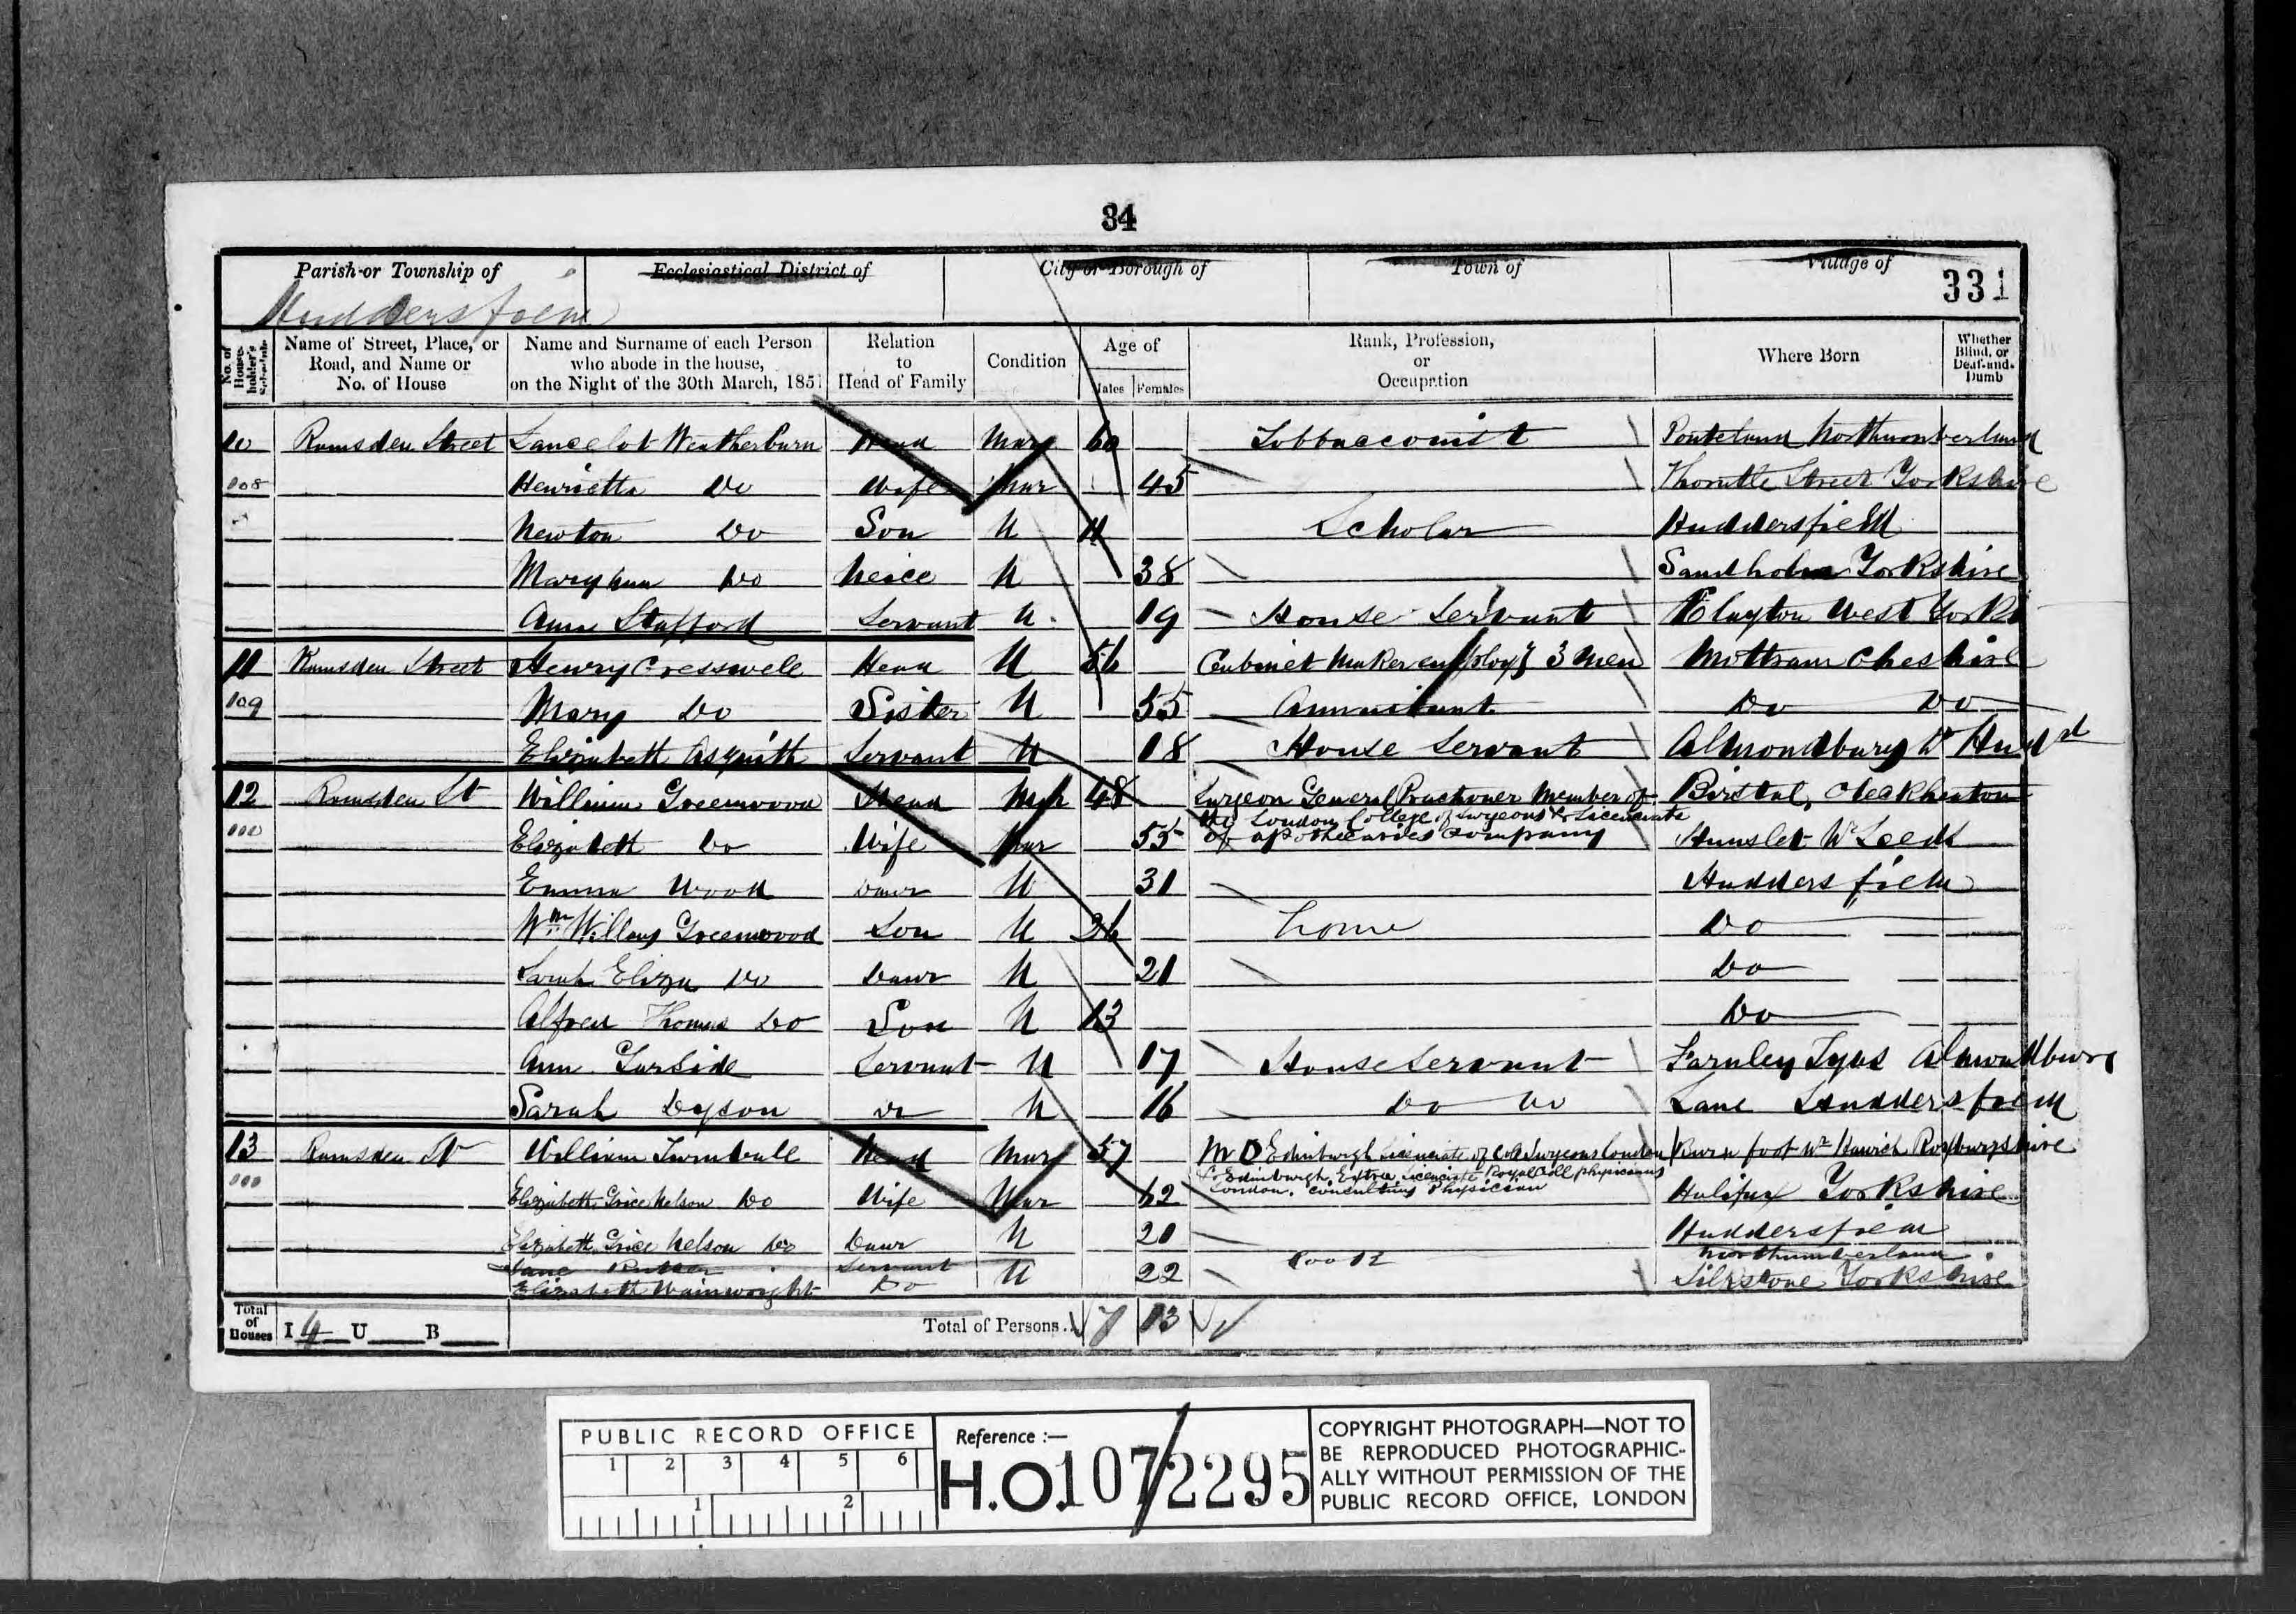 34
Parish or Township of Ecclesiastical District of City or Borough of Town of Village of
Huddersfield 331
No. of House-holder's Schedule Name of Street, Place, or Road, and Name or No. of House Name and Surname of each Person who abode in the house, on the Night of the 30th March, 1851 Relation to Head of Family Condition Age of Males Females Rank, Profession, or Occupation Where Born Whether Blind, or Deaf-and-Dumb
10 Ramsden Street Lancelot Weatherburn Head Mar 60 Tobbacconist Ponteland Northumberland
108 Henrietta Do Wife Mar 45 Street Yorkshire
Newton Do Son U 11 Scholar Huddersfield
Mary Ann Do Neice U 38 Sandholm Yorkshire
Ann Stafford Servant U 19 House Servant Clayton West Yorks
11 Ramsden Street Henry Cresswell Head U 56 Cabinet Maker employg 3 Men Mottram Cheshire
109 Mary Do Sister U 55 Annuitant Do Do
Elizabeth Asquith Servant U 18 House Servant Almondbury Nr Hudd
12 Ramsden St William Greenwood Head Mar 48 Surgeon General Practioner Member of Birstal, Cleckheaton
the London College of Surgeons & Licenciate
110 Elizabeth Do Wife Mar 55 of apothecaries company Hunslet Nr Leeds
Emma Wood Dawr U 31 Huddersfield
Wm Willans Greenwood Son U 26 home Do
Sarah Eliza Do Dawr U 21 Do
Alfred Thomas Do Son U 13 Do
Ann Garside Servant U 17 House Servant Farnley Tyas Almondbury
Sarah Dyson Do U 16 Do Do Lane Huddersfield
13 Ramsden St William Turnbull Head Mar 57 M D Edinburgh Licenciate of Col Surgeons London Burn foot Nr Hawick Roxburgshire
& Edinburgh Extra Licenciate Royal Coll Physicians
111 Elizabeth Grice Nelson Do Wife Mar 62 London. Consulting Physician Halifax Yorkshire
Elizabeth Grice Nelson Do Dawr U 20 Huddersfield
Jane Servant Northumberland
Elizabeth Wainwright Do U 22 Cook Silkstone Yorkshire
Total of Houses I 4 U B Total of Persons.. 7 13
PUBLIC RECORD OFFICE
1 2 3 4 5 6
1 2
Reference :—
H.O. 107/2295
COPYRIGHT PHOTOGRAPH—NOT TO
BE REPRODUCED PHOTOGRAPHIC-
ALLY WITHOUT PERMISSION OF THE
PUBLIC RECORD OFFICE, LONDON